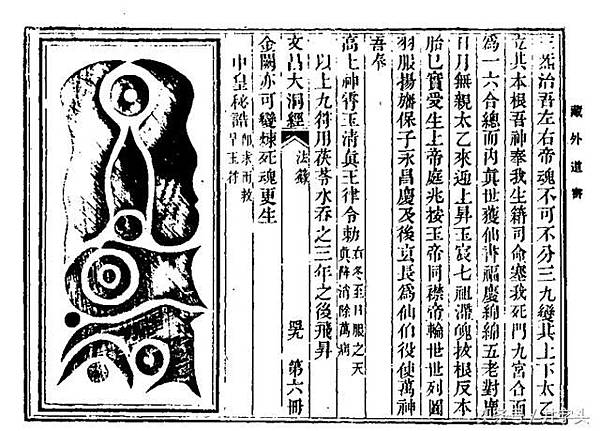 藏外道書
三炁治吾左右帝魂不可不分三九變其上下太乙
立其本根吾神奉我生籍司命塞我死門九宮合而
為一六合總而內真世獲仙書福慶綿綿五老對塵
日月無親太乙來迎上昇玉宸七祖滯魄拔根反本
胎已寶愛生上帝庭兆按王帝同襟帝輪世世列圖
羽服揚旛保子永昌慶及後哀長為仙伯役使萬神
吾奉
高上神霄玉清真王律令勅 右冬至日服之天真降消除萬病
以上九符用茯苓水吞之三年之後飛昇
文昌大洞經 法籙 第六冊
金闕亦可變煉死魂更生
中皇秘誥